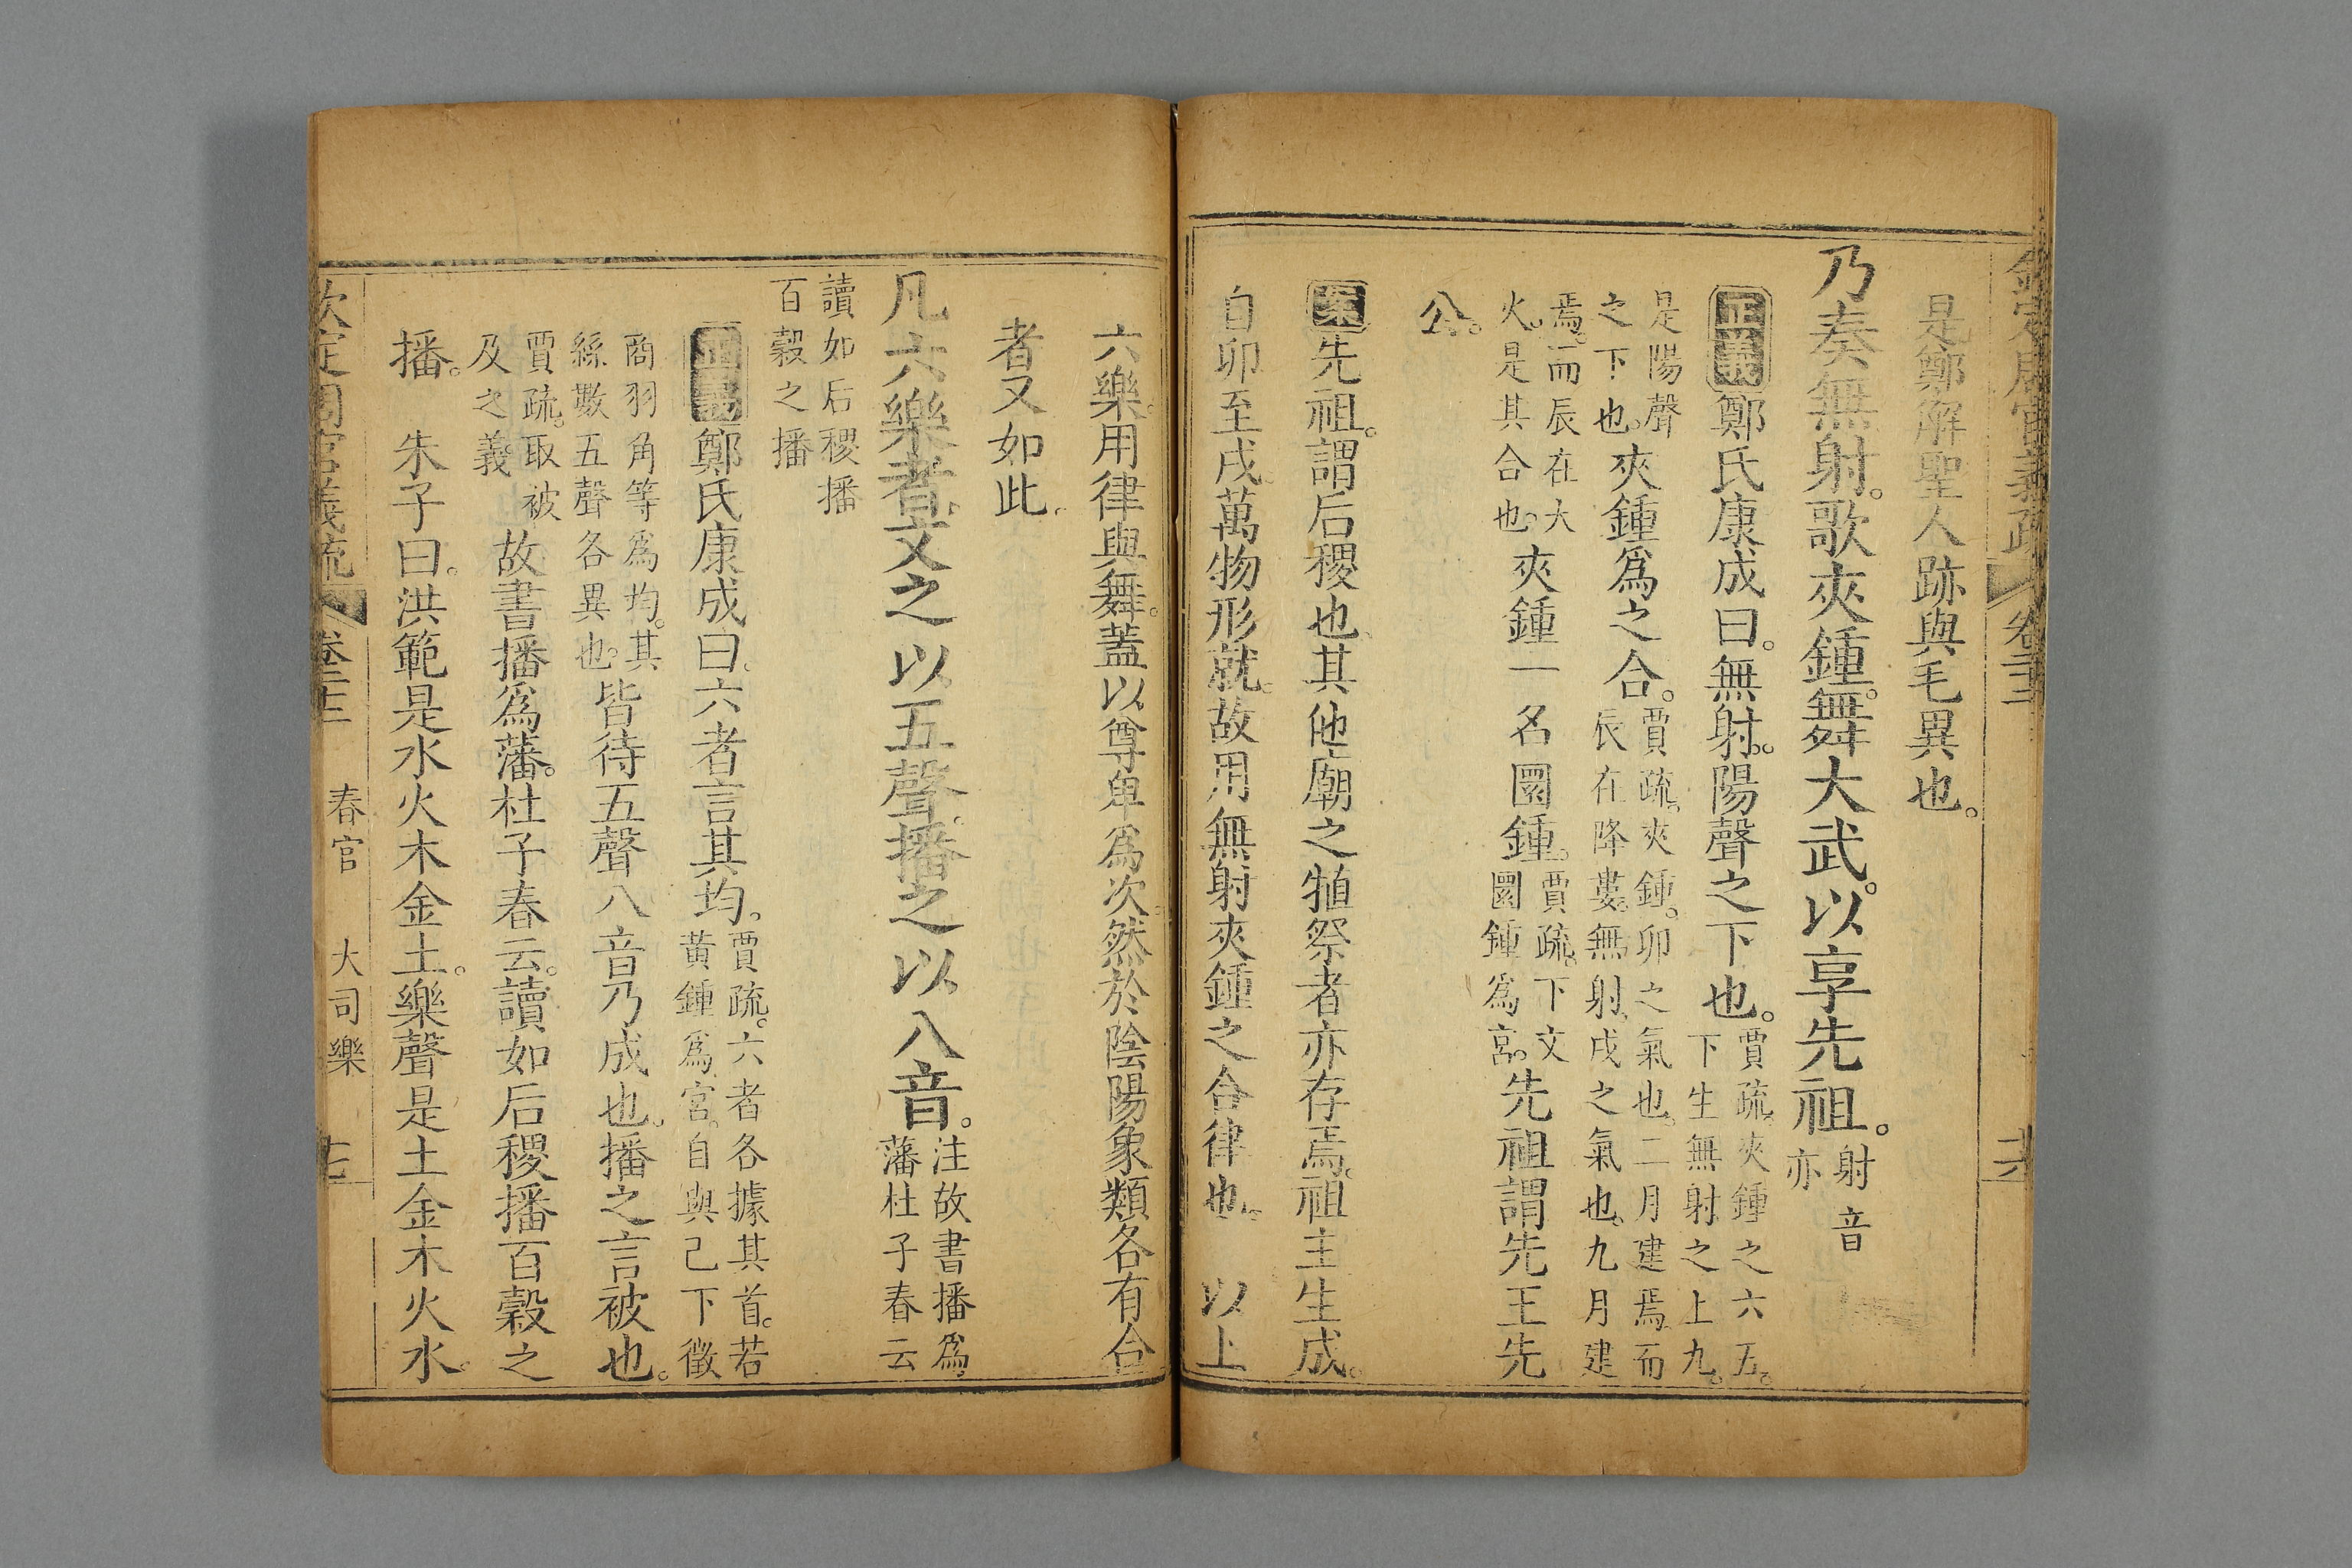 欽定周官義疏 卷二十二 十六
是鄭解聖人跡與毛異也。
乃奏無射。歌夾鍾。舞大武。以享先祖。射音
亦
正義 鄭氏康成曰。無射。陽聲之下也。賈疏。夾鍾之六五。
下生無射之上九。
是陽聲
之下也。夾鍾爲之合。賈疏。夾鍾。卯之氣也。二月建焉而
辰在降婁。無射。戌之氣也。九月建
焉。而辰在大
火。是其合也。夾鍾一名圜鍾。賈疏。下文
圜鍾爲宮。先祖謂先王先
公。
案 先祖。謂后稷也。其他廟之犆祭者亦存焉。祖主生成。
自卯至戌。萬物形就。故用無射夾鍾之合律也。 以上
六樂。用律與舞。蓋以尊卑爲次。然於陰陽象類各有合
者又如此。
凡六樂者。文之以五聲。播之以八音。注故書播爲
藩杜子春云
讀如后稷播
百穀之播
正義 鄭氏康成曰。六者言其均。賈疏。六者各據其首。若
黃鍾爲宮。自與己下徵
商羽角等爲均。其
絲數五聲各異也。皆待五聲八音乃成也。播之言被也。
賈疏。取被
及之義。故書播爲藩。杜子春云。讀如后稷播百穀之
播。 朱子曰。洪範是水火木金土。樂聲是土金木火水。
欽定周官義疏 卷二十二 春官 大司樂 十七